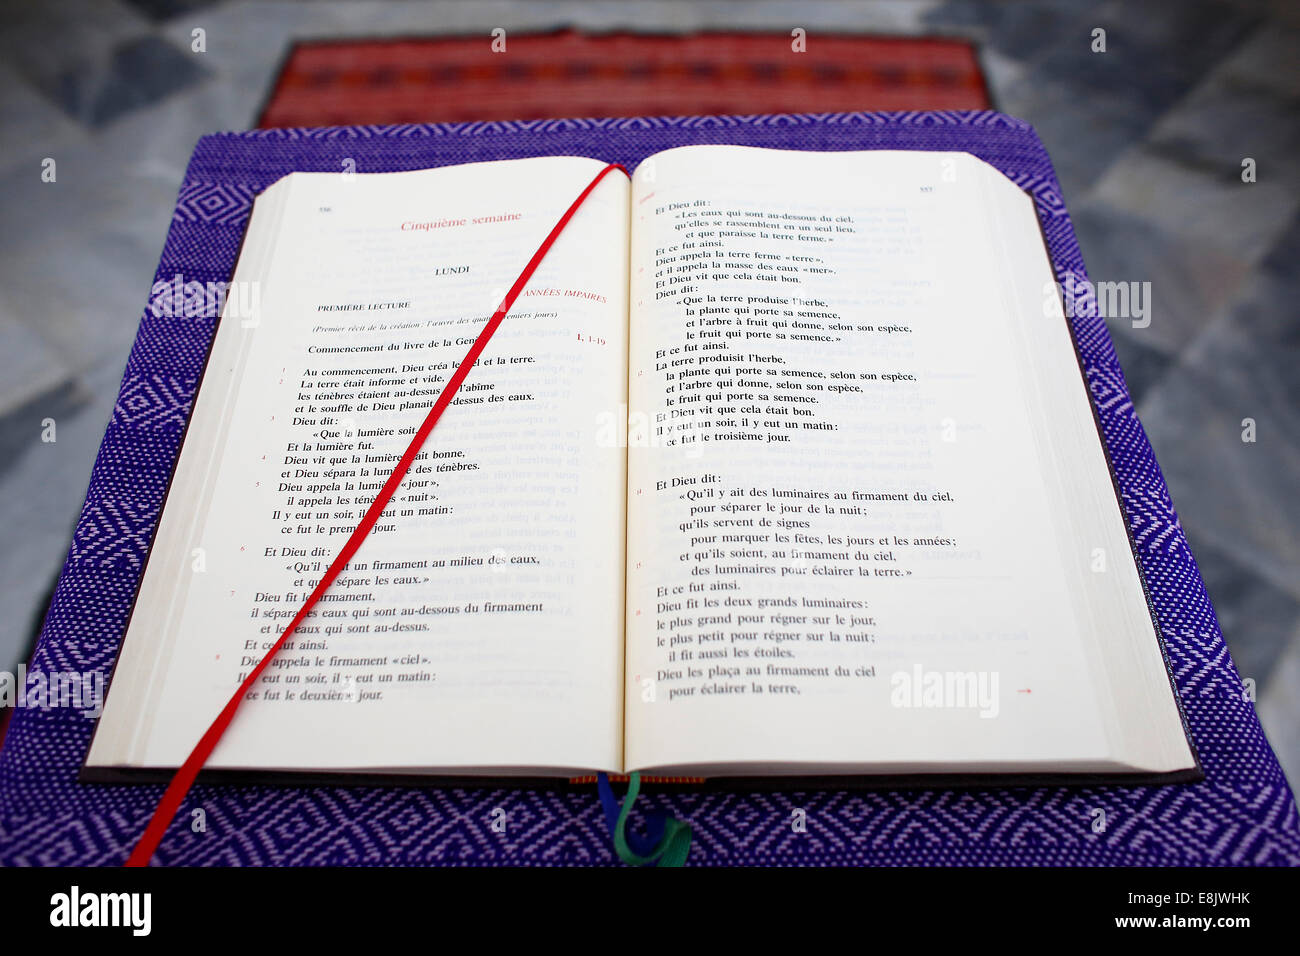 556
Cinquième semaine
LUNDI
ANNÉES IMPAIRES
PREMIÈRE LECTURE
(Premier récit de la création : l'œuvre des premiers jours)
Commencement du livre de la 1, 1-19
1 Au commencement, Dieu créa le et la terre.
2 La terre était informe et vide,
les ténèbres étaient au-dessus l'abîme
et le souffle de Dieu planait au-dessus des eaux.
3 Dieu dit :
« Que la lumière soit.
Et la lumière fut.
4 Dieu vit que la lumière était bonne,
et Dieu sépara la lumière des ténèbres.
5 Dieu appela la lumière « jour »,
il appela les ténèbres « nuit ».
Il y eut un soir, il y eut un matin :
ce fut le premier jour.
6 Et Dieu dit :
« Qu'il y ait un firmament au milieu des eaux,
et qu'il sépare les eaux. »
7 Dieu fit le firmament,
il sépara les eaux qui sont au-dessous du firmament
et les eaux qui sont au-dessus.
Et ce fut ainsi.
8 Dieu appela le firmament « ciel ».
Il y eut un soir, il y eut un matin :
ce fut le deuxième jour.
557
Et Dieu dit :
« Les eaux qui sont au-dessous du ciel,
qu'elles se rassemblent en un seul lieu,
et que paraisse la terre ferme. »
Et ce fut ainsi.
Dieu appela la terre ferme « terre »,
et il appela la masse des eaux « mer».
Et Dieu vit que cela était bon.
Dieu dit :
« Que la terre produise l'herbe,
la plante qui porte sa semence,
et l'arbre à fruit qui donne, selon son espèce,
le fruit qui porte sa semence. »
Et ce fut ainsi.
La terre produisit l'herbe,
la plante qui porte sa semence, selon son espèce,
et l'arbre qui donne, selon son espèce,
le fruit qui porte sa semence.
Et Dieu vit que cela était bon.
Il y eut un soir, il y eut un matin :
ce fut le troisième jour.
Et Dieu dit :
14 « Qu'il y ait des luminaires au firmament du ciel,
pour séparer le jour de la nuit ;
qu'ils servent de signes
pour marquer les fêtes, les jours et les années ;
15 et qu'ils soient, au firmament du ciel,
des luminaires pour éclairer la terre. »
Et ce fut ainsi.
16 Dieu fit les deux grands luminaires :
le plus grand pour régner sur le jour,
le plus petit pour régner sur la nuit ;
il fit aussi les étoiles.
17 Dieu les plaça au firmament du ciel
pour éclairer la terre,
→
alamy
a
alamy stock photo
E8JWHK
www.alamy.com